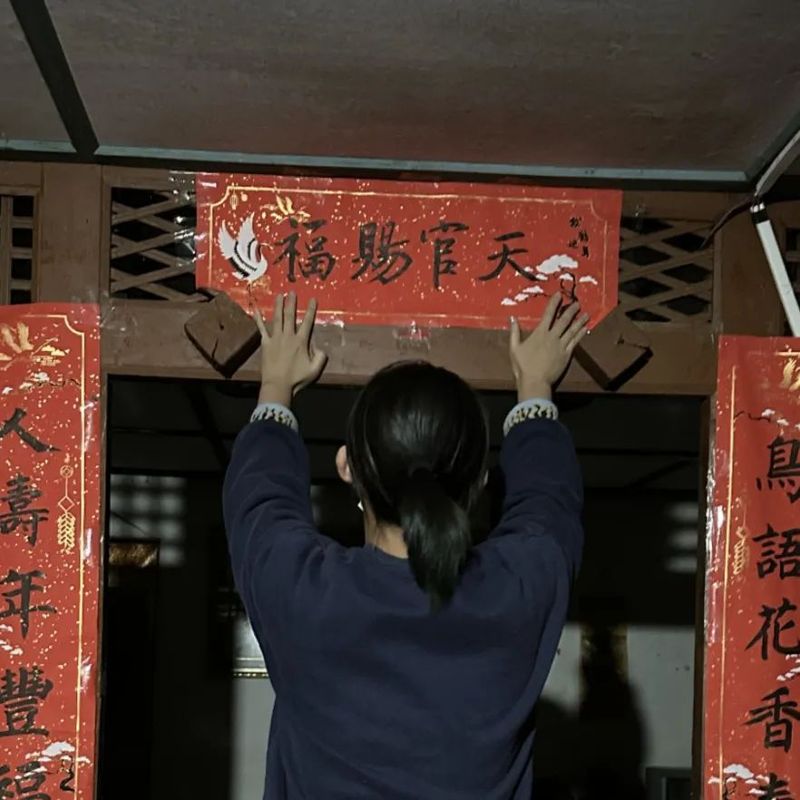 天官賜福
鳥語花香
人壽年豐福